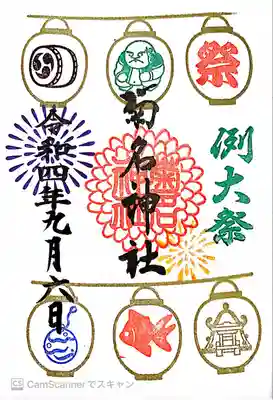 祭
例大祭
菊名神社
令和四年九月六日
CS CamScannerでスキャン